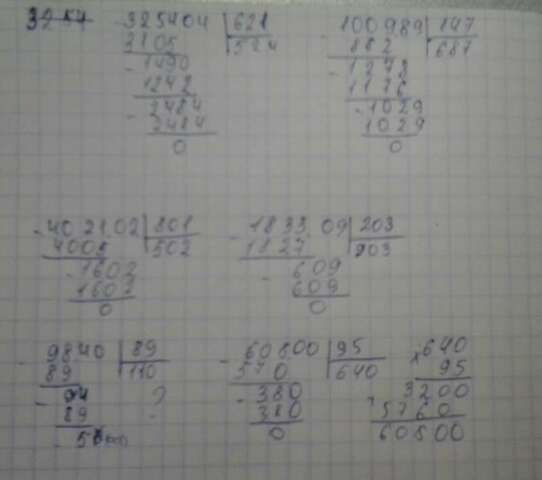 3254 325404 | 621 100989 | 147
3105 524 882 687
1490 1278
1242 1176
2484 1029
2484 1029
0 0
402102 | 801 183309 | 203
4005 502 1827 903
1602 609
1602 609
0 0
9840 | 89 60800 | 95 ×640
89 110 570 640 95
94 ? 380 3200
89 380 5760
5 0 60800